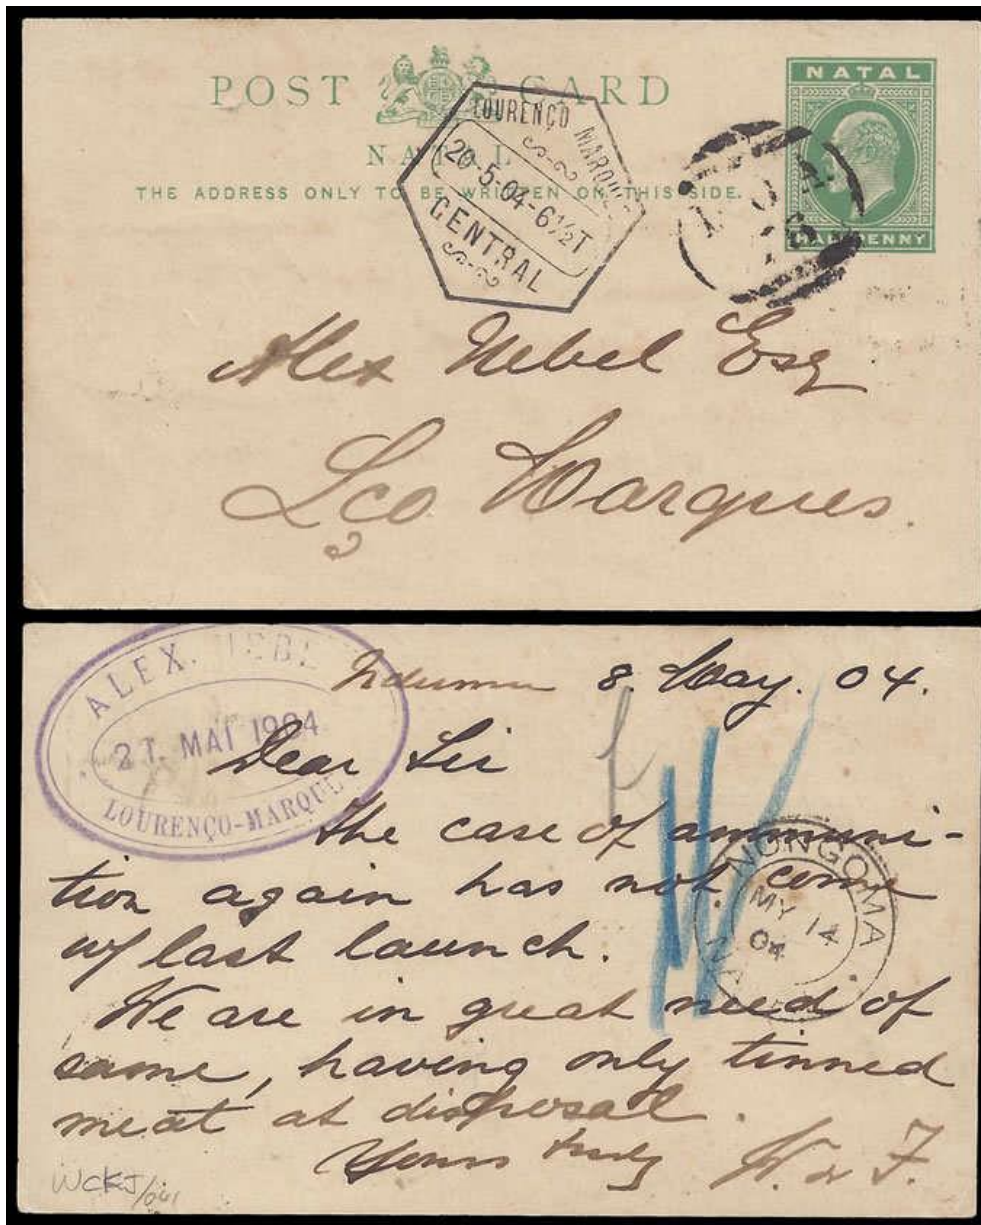 POST CARD
NATAL
THE ADDRESS ONLY TO BE WRITTEN ON THIS SIDE.
NATAL
HALFPENNY
LOURENÇO MARQUES
20-5-04-6½T
CENTRAL
Alex Nebel Esq
Lço Marques.
ALEX. NEBEL
21. MAI 1904
LOURENÇO-MARQUES
Nduma 8. May. 04.
Dear Sir
The case of ammuni-
tion again has not come
w/ last launch.
We are in great need of
same, having only tinned
meat at disposal.
Yours truly
NONGOMA
MY 14
04
WCKJ/041